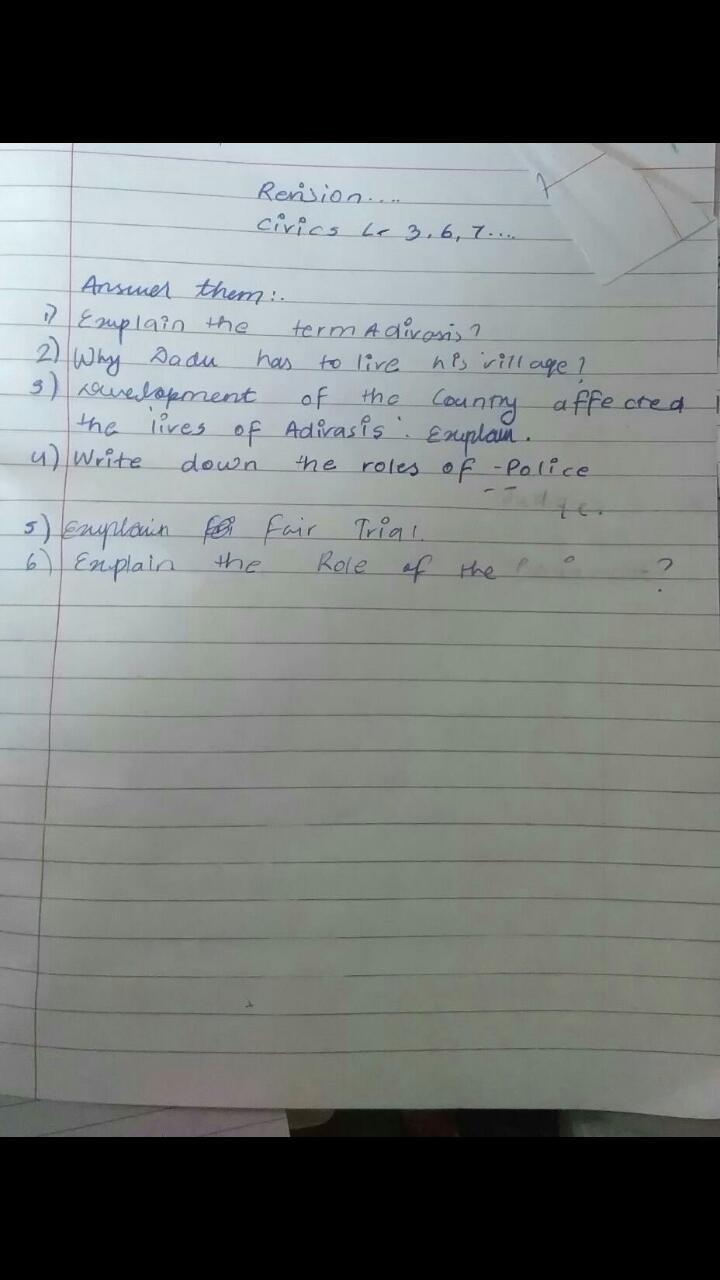 Revision....
Civics L- 3, 6, 7....
Answer them:-
1) Explain the term Adivasis?
2) Why Dadu has to live his village?
3) Development of the Country affected
the lives of Adivasis. Explain.
4) Write down the roles of - Police
- Judge.
5) Explain Fair Trial.
6) Explain the Role of the ?